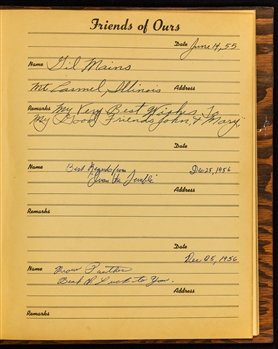 Friends of Ours
Date June 14, 55
Name Gil Mains
Mt Carmel, Illinois Address
Remarks My Very Best Wishes To
My Good Friends John & Mary
Date
Name Best Regards from Dec 25, 1956
Address
Remarks
Date
Dec 25, 1956
Name
Best of Luck to You.
Address
Remarks